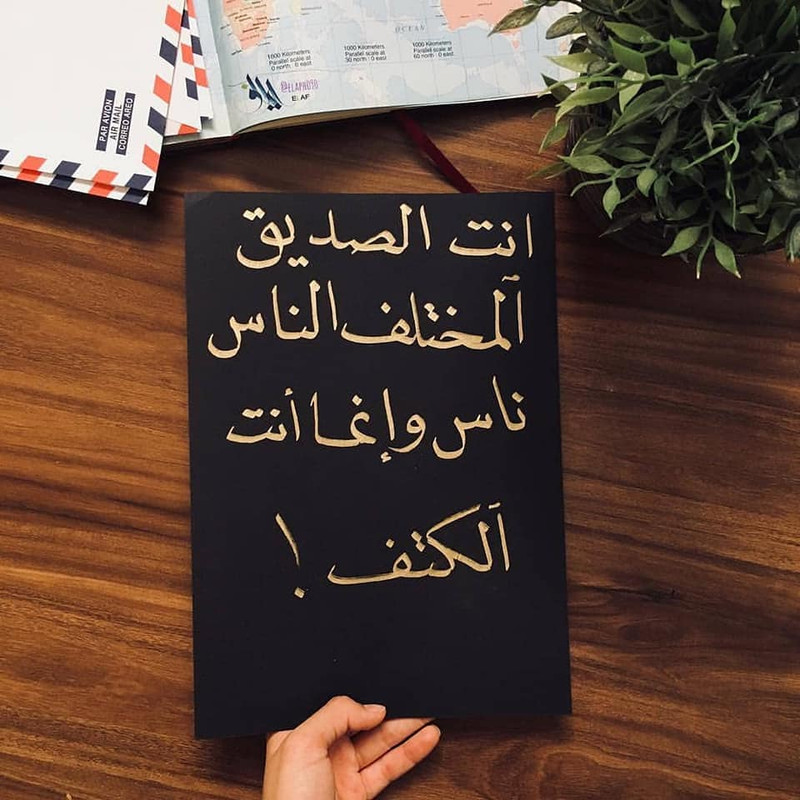 1000 Kilometers
Parallel scale at
0 north : 0 east
1000 Kilometers
Parallel scale at
30 north : 0 east
1000 Kilometers
Parallel scale at
60 north : 0 east
OCEAN
@ELAPH090
ELAF
PAR AVION
AIR MAIL
CORREO AREO
انت الصديق
ألمختلف الناس
ناس وإنما أنت
ألكتف !